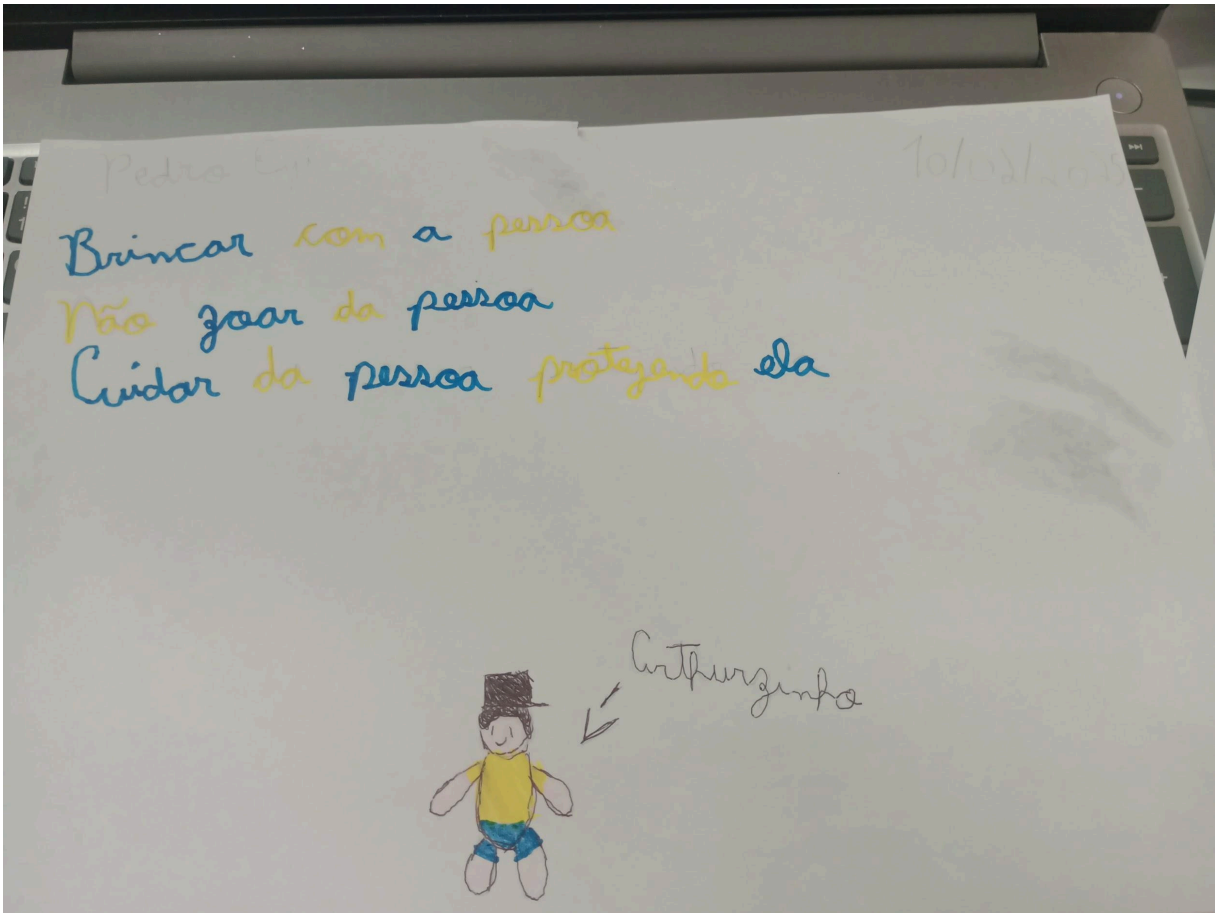 Pedro
Brincar com a pessoa
Não zoar da pessoa
Cuidar da pessoa protejendo ela
Arthurzinho